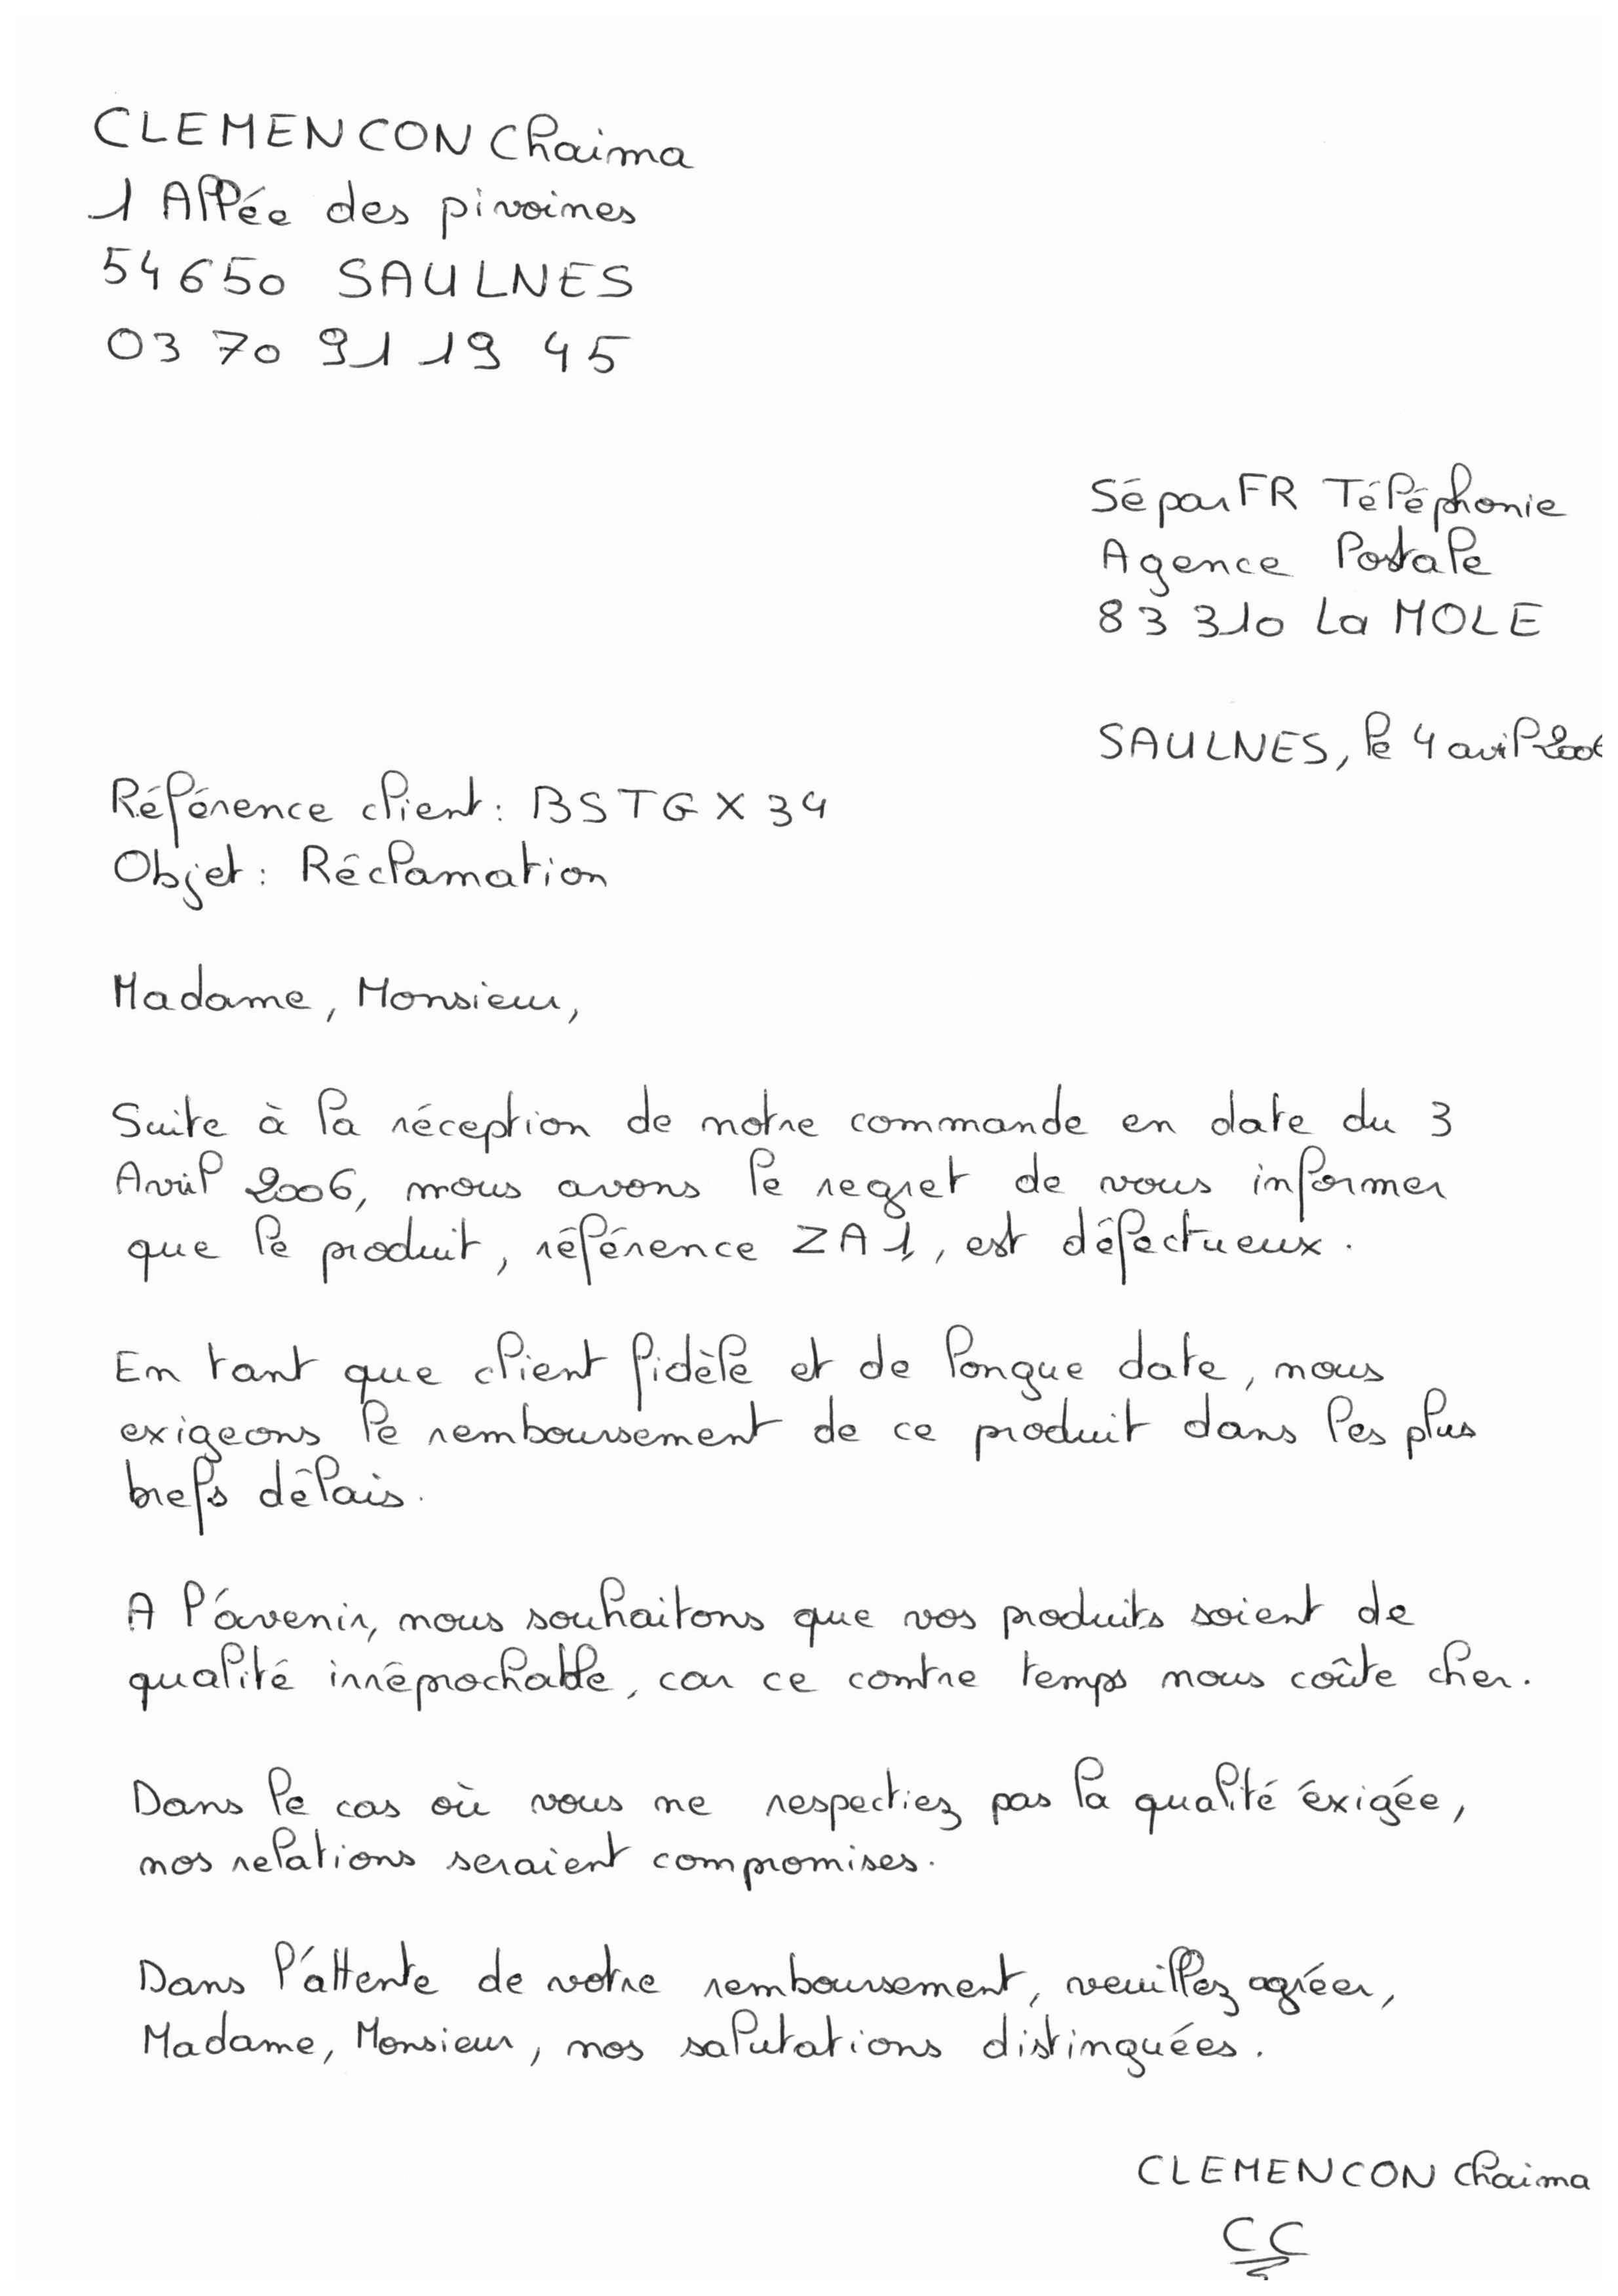 CLEMENCON Chaima
1 Allée des pivoines
54650 SAULNES
03 70 91 19 45
SéparFR Téléphonie
Agence Postale
83310 La MOLE
SAULNES, le 4 avril 2006
Référence client : BSTGX34
Objet : Réclamation
Madame, Monsieur,
Suite à la réception de notre commande en date du 3
Avril 2006, nous avons le regret de vous informer
que le produit, référence ZA1, est défectueux.
En tant que client fidèle et de longue date, nous
exigeons le remboursement de ce produit dans les plus
brefs délais.
A l'avenir, nous souhaitons que vos produits soient de
qualité irréprochable, car ce contre temps nous coûte cher.
Dans le cas où vous ne respectiez pas la qualité éxigée,
nos relations seraient compromises.
Dans l'attente de votre remboursement, veuillez agréer,
Madame, Monsieur, nos salutations distinguées.
CLEMENCON Chaima
CC